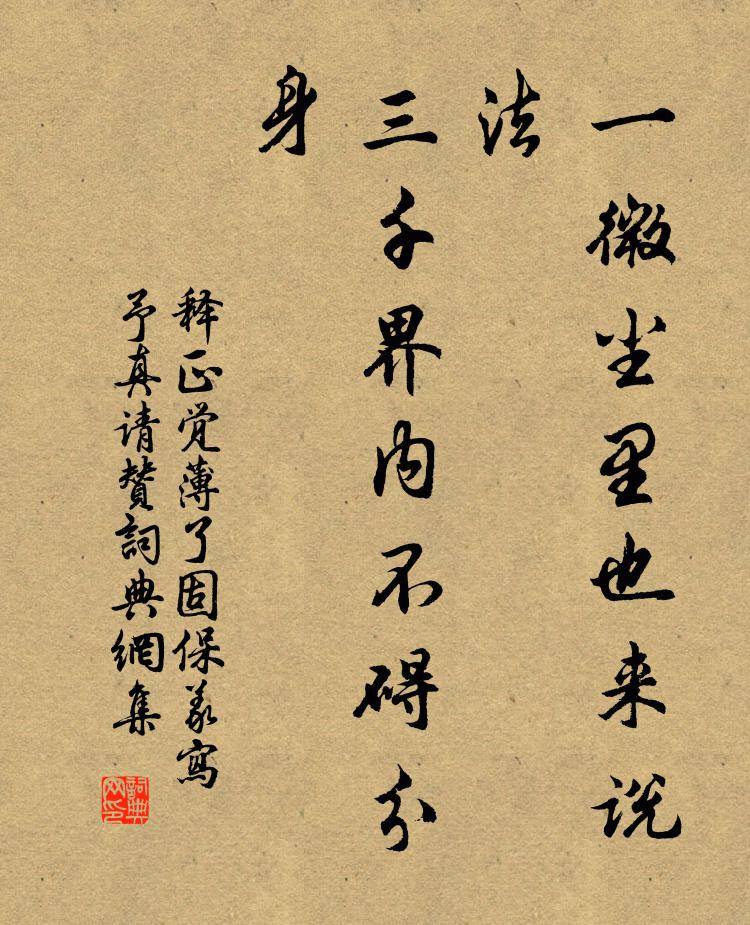 一微尘里也来说
法
三千界内不碍分
身
释正觉薄了固保义寫
予真请赞詞典網集
詞典
网印